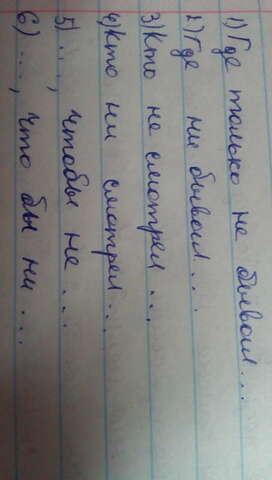 1) Где только не бывал...
2) Где ни бывал...
3) Кто не смотрел...
4) Кто ни смотрел...
5) ..., чтобы не...
6) ..., что бы ни...